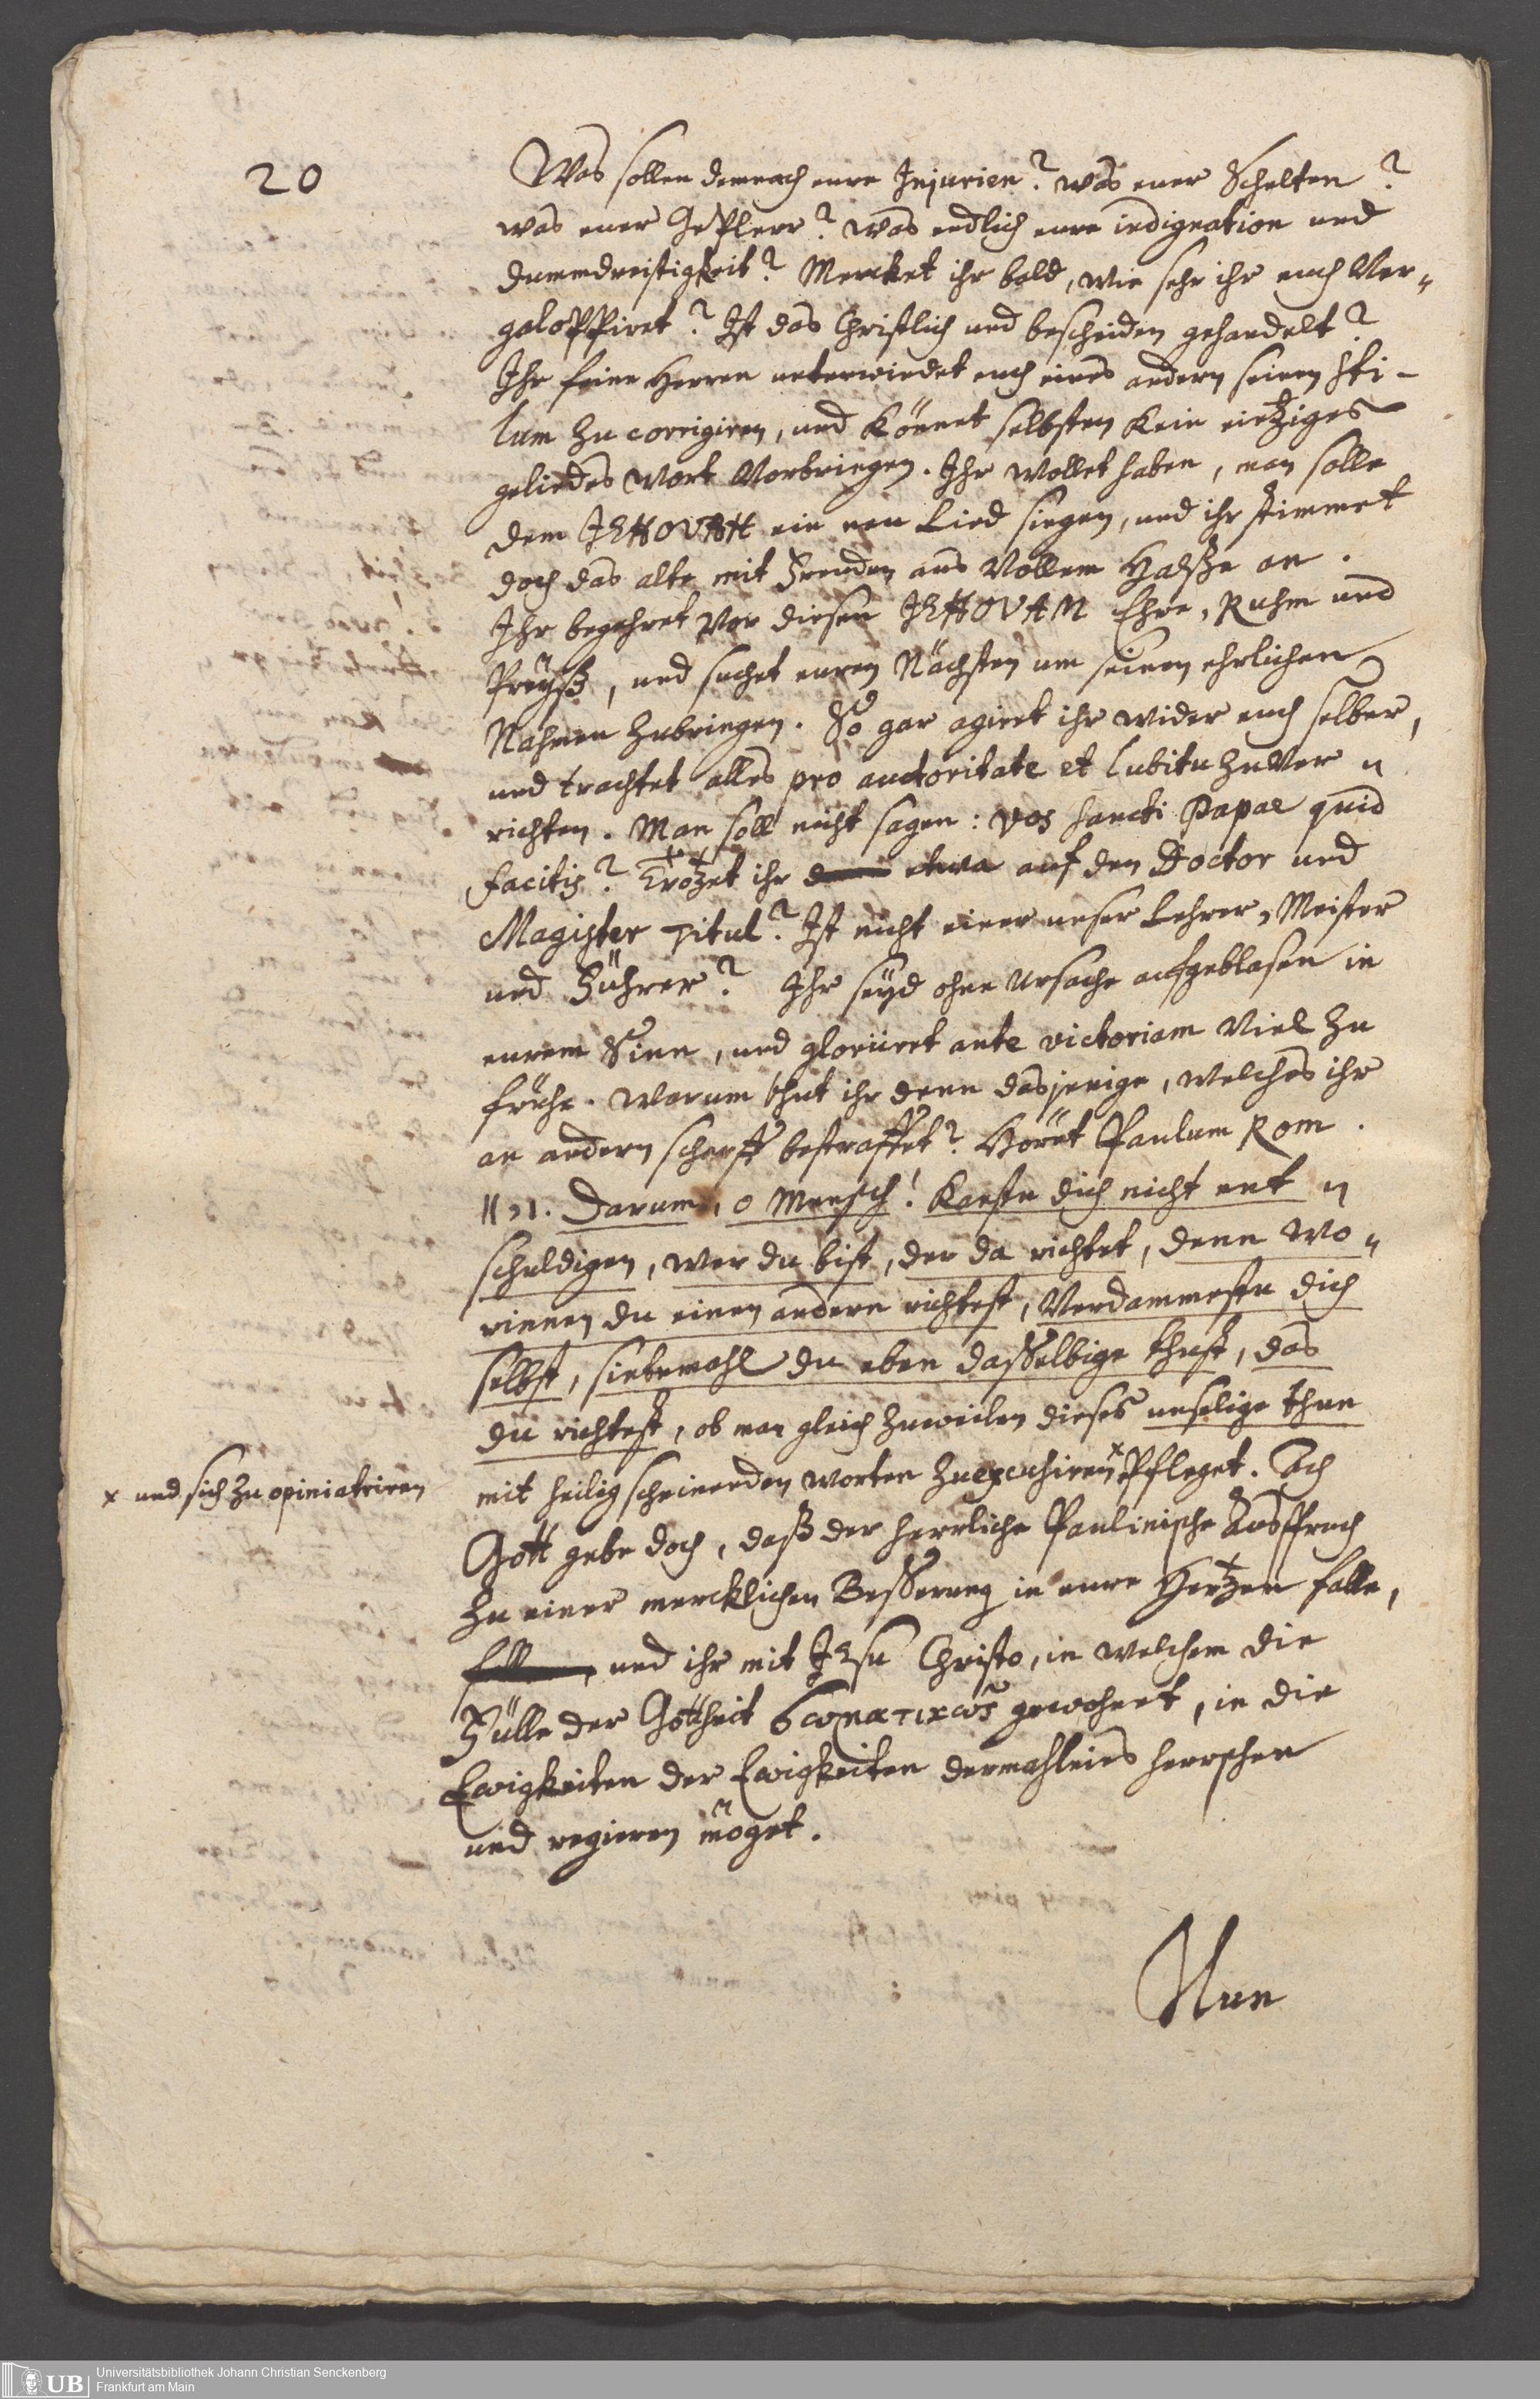 20
Was sollen demnach eure Injurien? was euer Schelten?
was euer Geplerr? was endlich eure indignation und
dummdreistigkeit? Mercket ihr bald, wie sehr ihr euch Ver-
galoppiret? Ist das Christlich und bescheiden gehandelt?
Ihr feine Herren unterwindet euch eines andern seinen sti-
lum zu corrigiren, und könnet selbsten kein eintziges
gelindes Wort Vorbringen. Ihr wollet haben, man solle
dem JEHOVAH ein neu Lied singen, und ihr stimmet
doch das alte mit Freuden aus Vollem Halße an.
Ihr begehret vor diesen JEHOVAM Ehre, Ruhm und
Preyß, und suchet euren Nächsten um seinen ehrlichen
Nahmen zubringen. So gar agiret ihr wider euch selber,
und trachtet alles pro auctoritate et lubitu zuVer-
richten. Man soll nicht sagen: vos sancti Papae quid
facitis? Trotzet ihr etwa auf den Doctor und
Magister Titul? Ist nicht einer unser Lehrer, Meister
und Führer? Ihr seyd ohne Ursache aufgeblasen in
eurem Sinn, und gloriiret ante victoriam Viel zu
frühe. Warum thut ihr denn dasjenige, welches ihr
an andern scharff bestraffet? Höret Paulum Rom.
II, 1. Darum, o Mensch! kanstu dich nicht ent-
schuldigen, wer du bist, der da richtet, denn wo-
rinnen du einen andern richtest, Verdammestu dich
selbst, sintemahl du eben dasselbige thust, das
du richtest, ob man gleich zuweilen dieses unselige thun
mit heilig scheinenden worten zu x Pfleget. Ach
x und sich zu opiniatriren
Gott gebe doch, daß der herrliche Paulinische Ausspruch
zu einer mercklichen Besserung in eure Hertzen falle,
und ihr mit JEsu Christo, in welchem die
Fülle der Gottheit σωματικῶς gewohnet, in die
Ewigkeiten der Ewigkeiten dermahleins herrschen
und regieren möget.
Nun
UB
Universitätsbibliothek Johann Christian Senckenberg
Frankfurt am Main